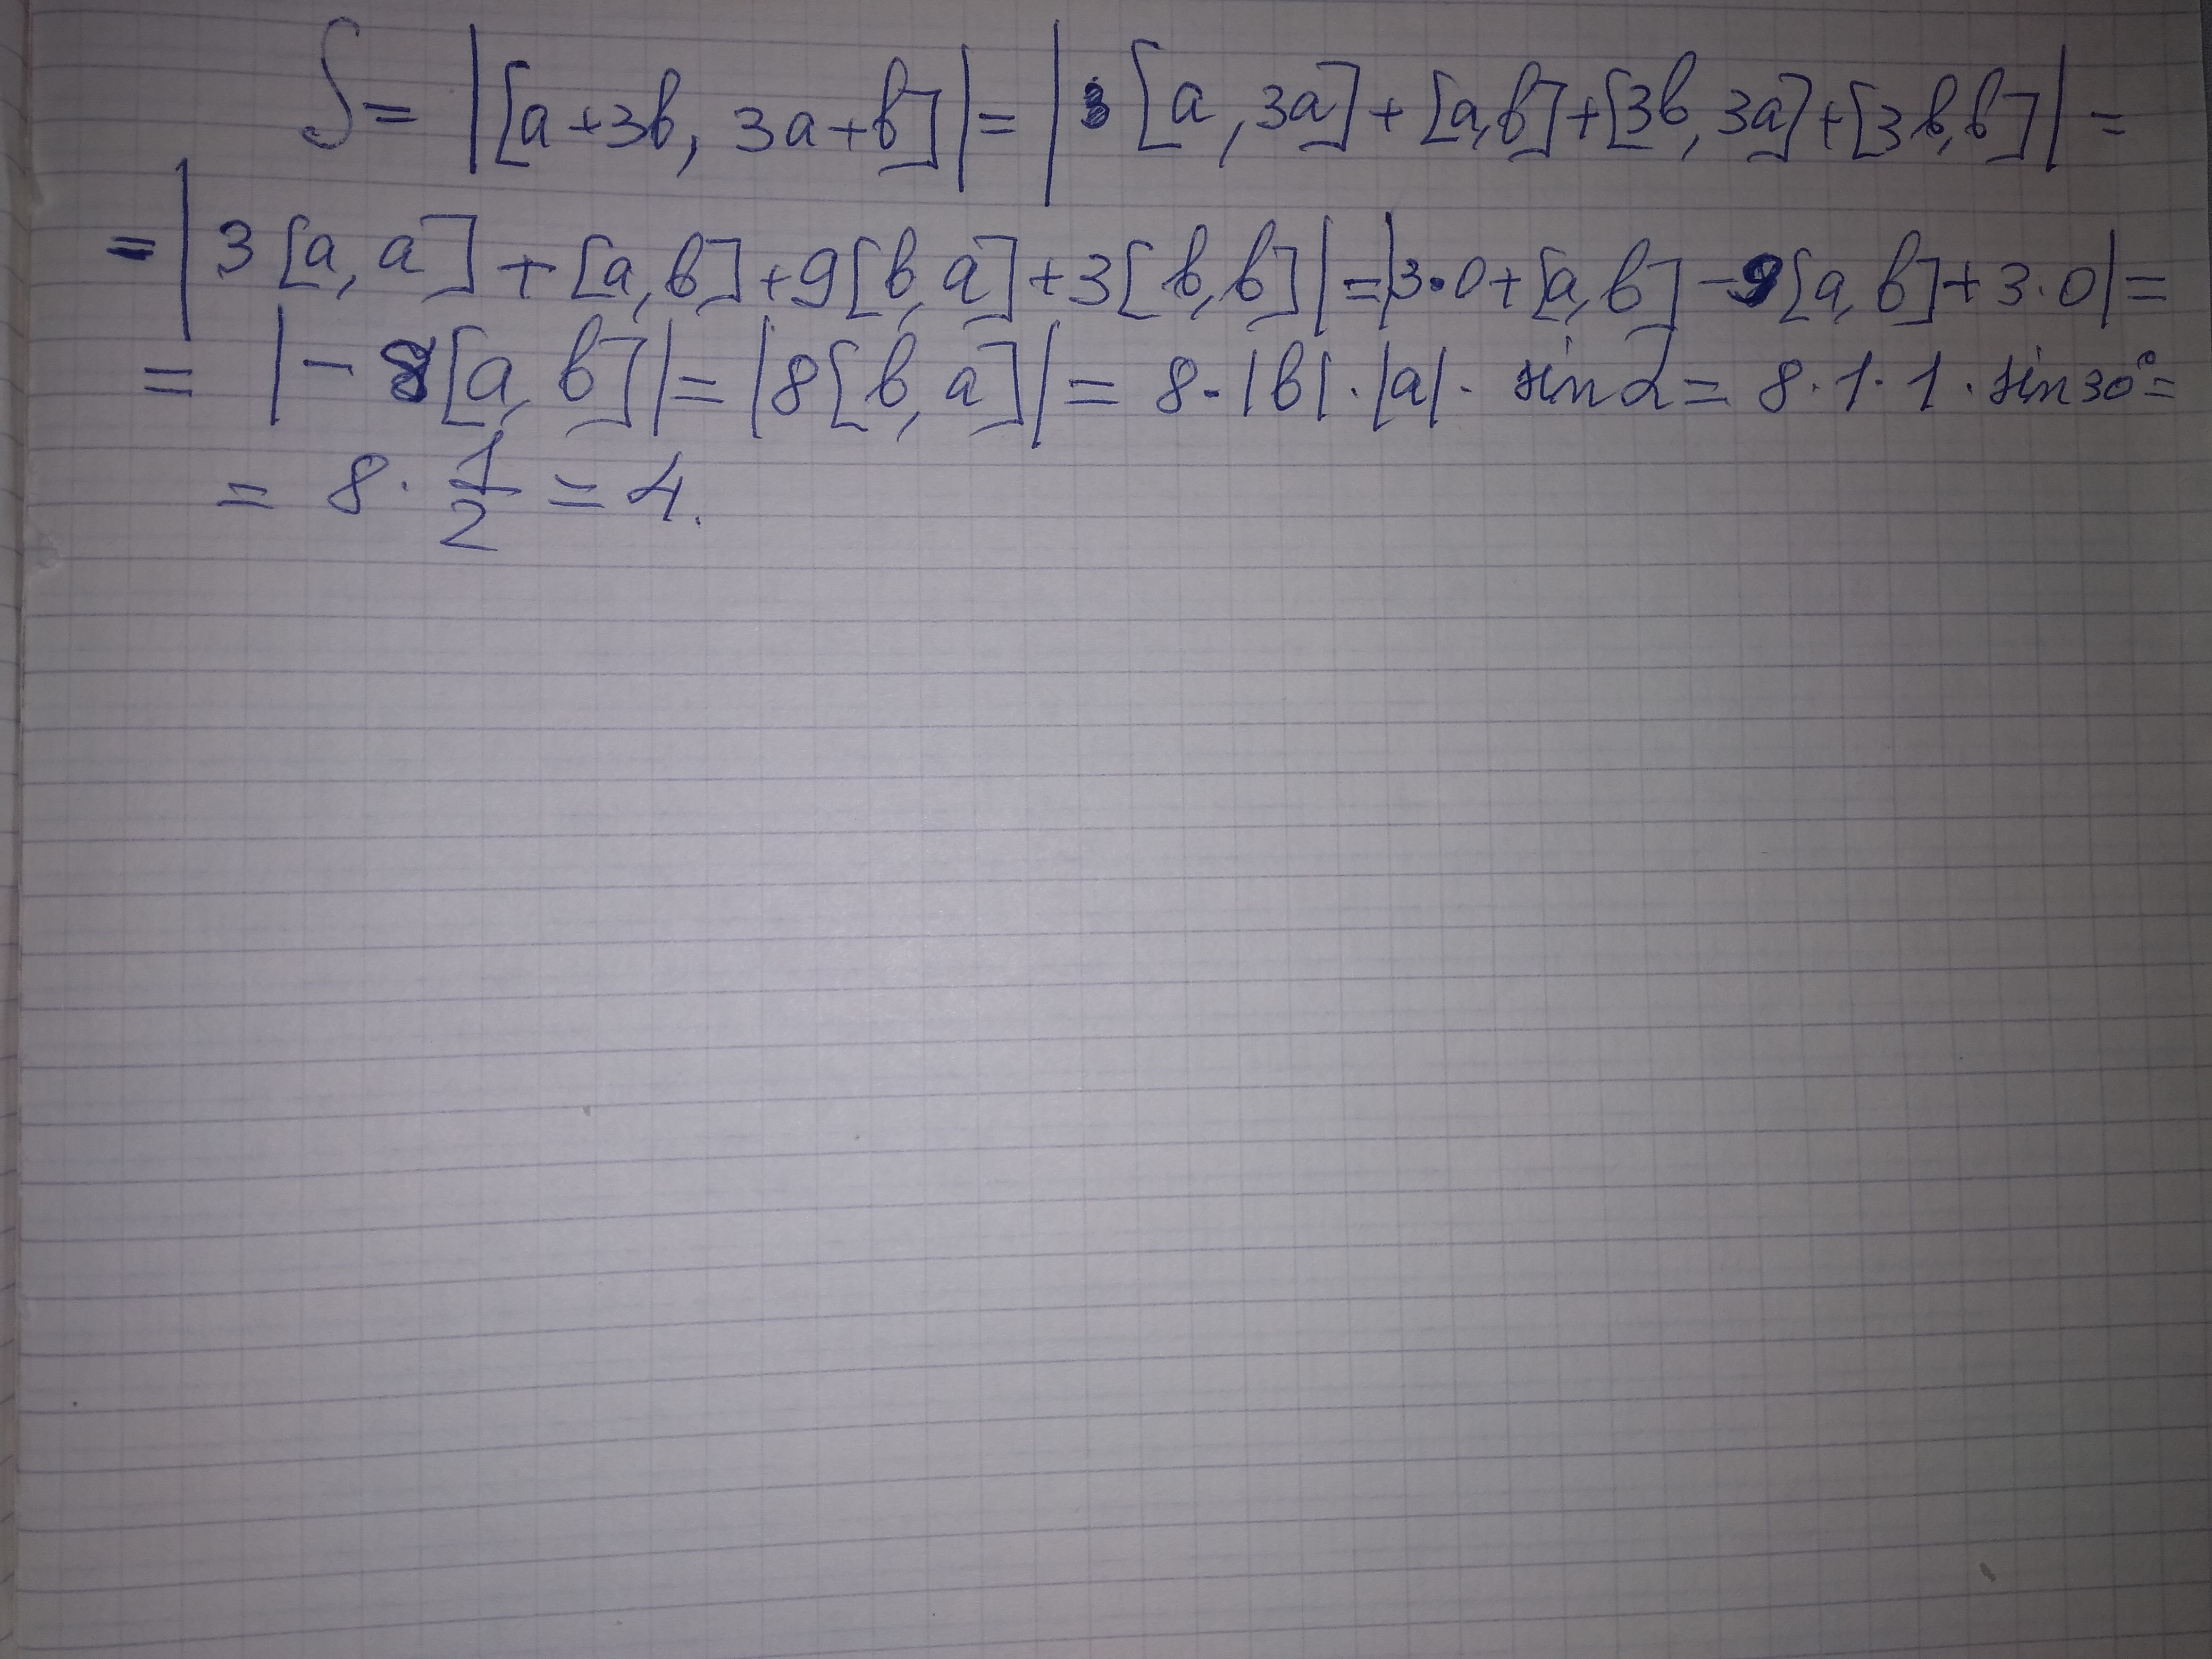 S = |[a+3b, 3a+b]| = |[a, 3a] + [a,b] + [3b, 3a] + [3b,b]| =
= |3[a, a] + [a,b] + 9[b,a] + 3[b,b]| = |3·0 + [a,b] - 9[a,b] + 3·0| =
= |-8[a,b]| = |8[b,a]| = 8·|b|·|a|· sin α = 8·1·1· sin 30° =
= 8· 1/2 = 4.